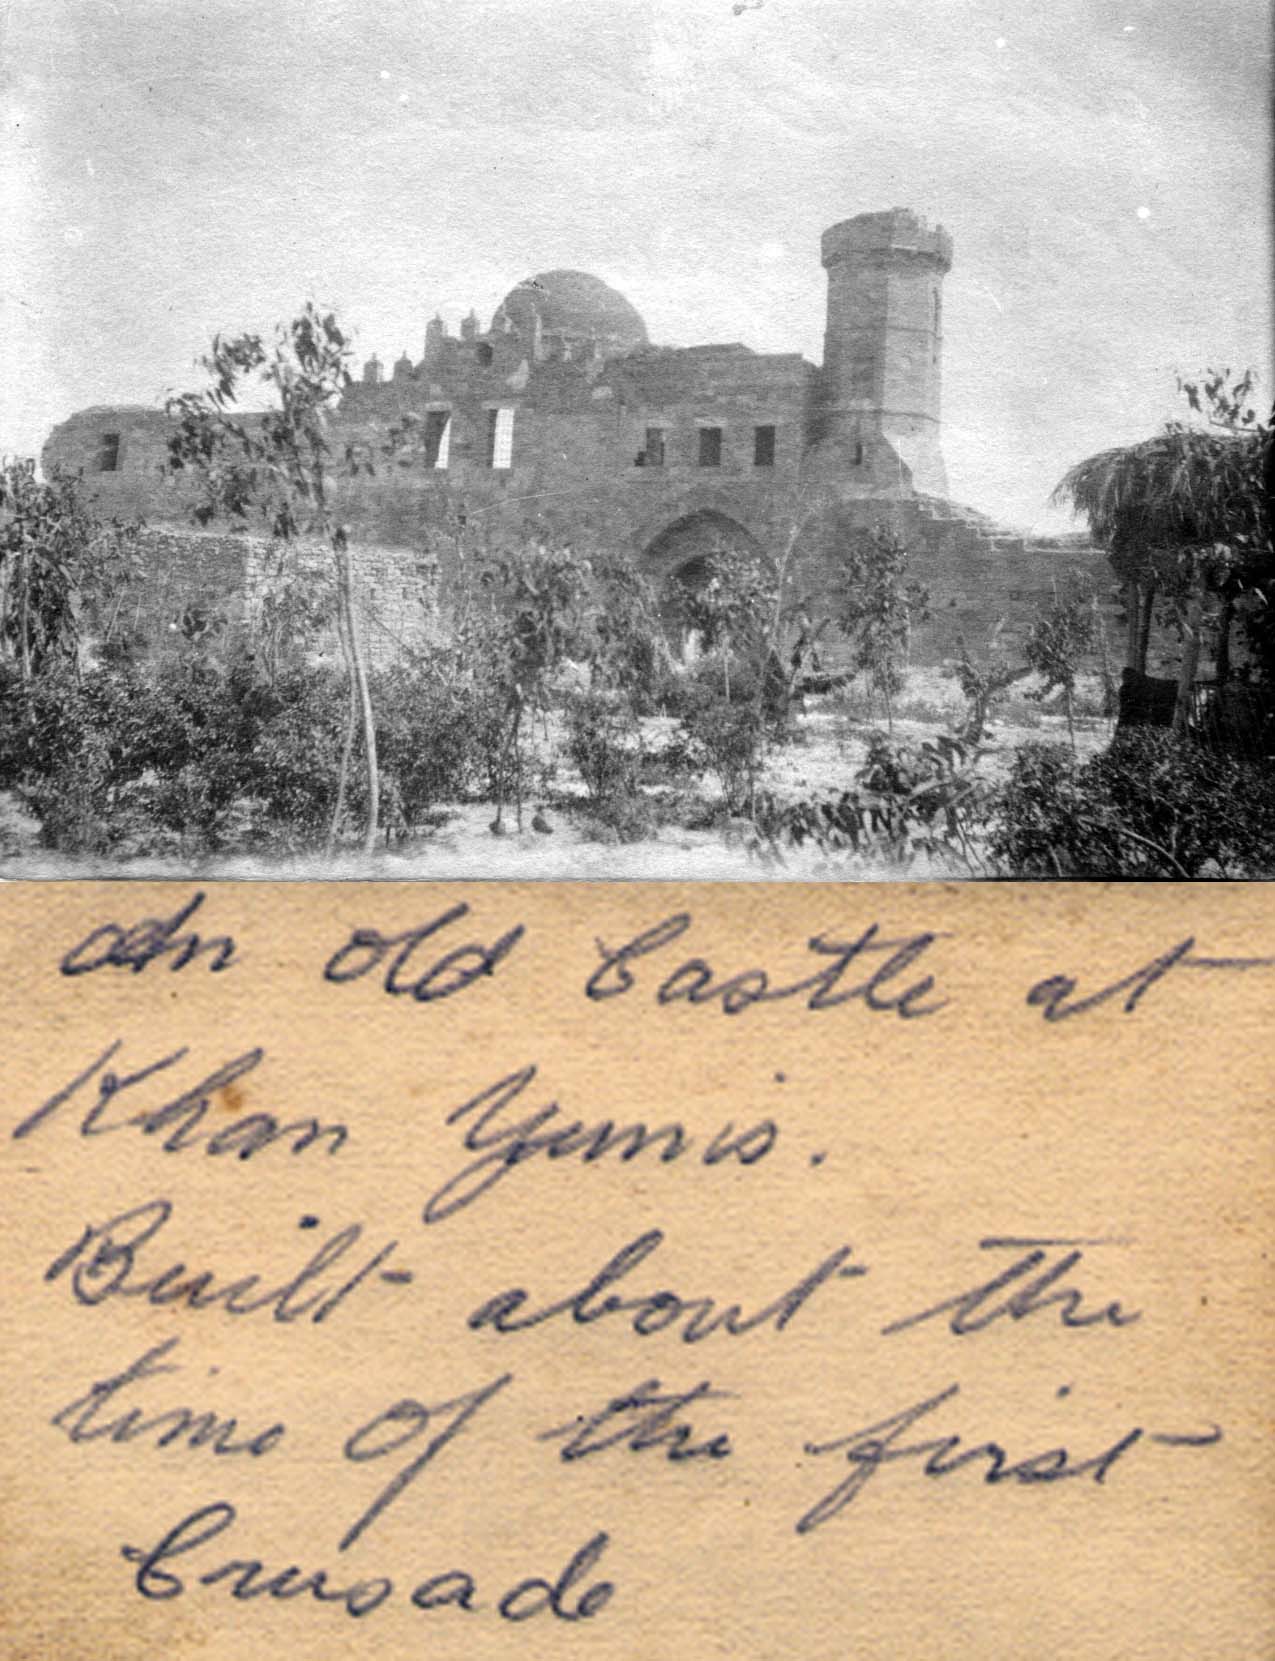 An old Castle at
Khan Yunis.
Built about the
time of the first
Crusade